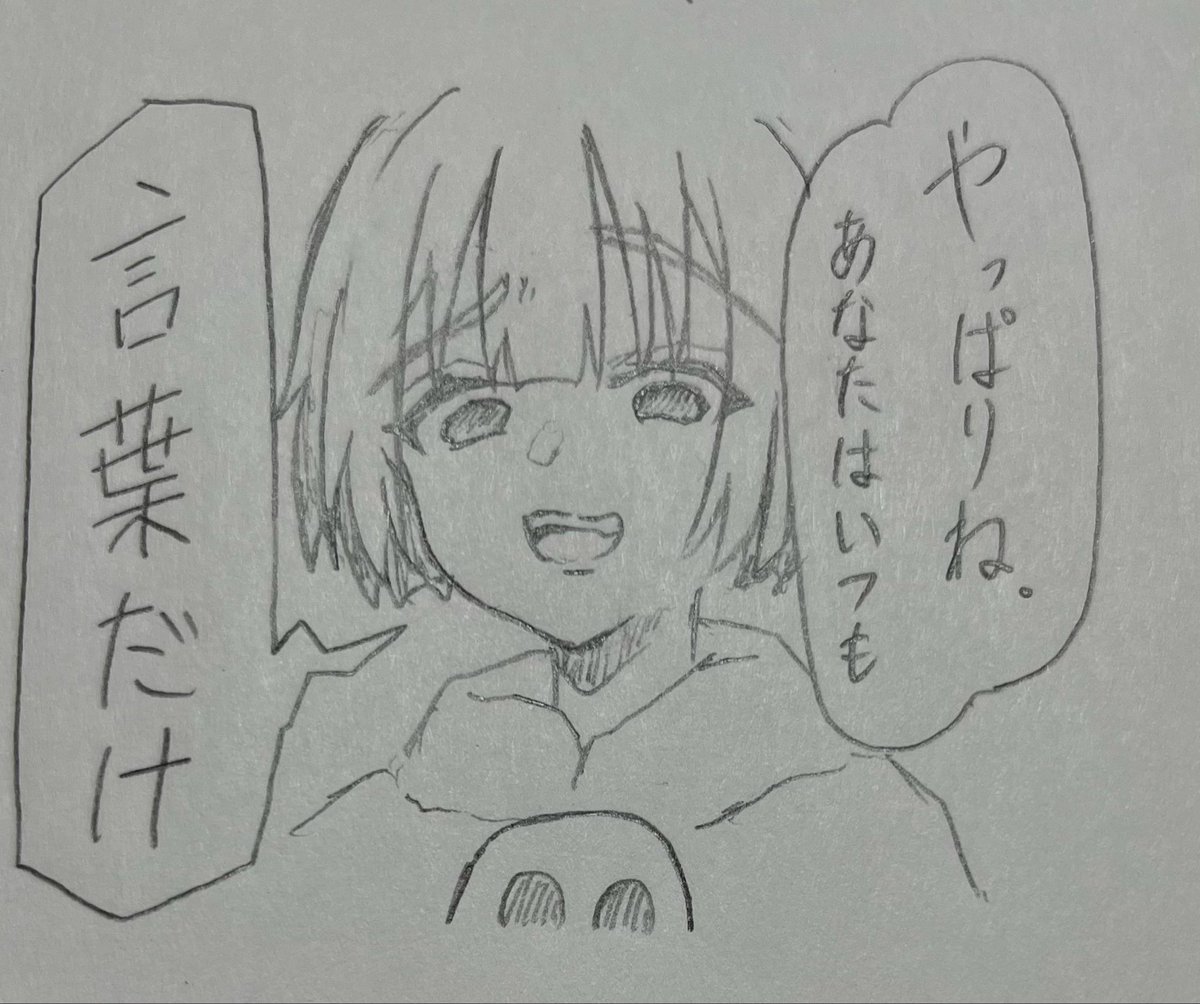 やっぱりね。
あなたはいつも
言葉だけ